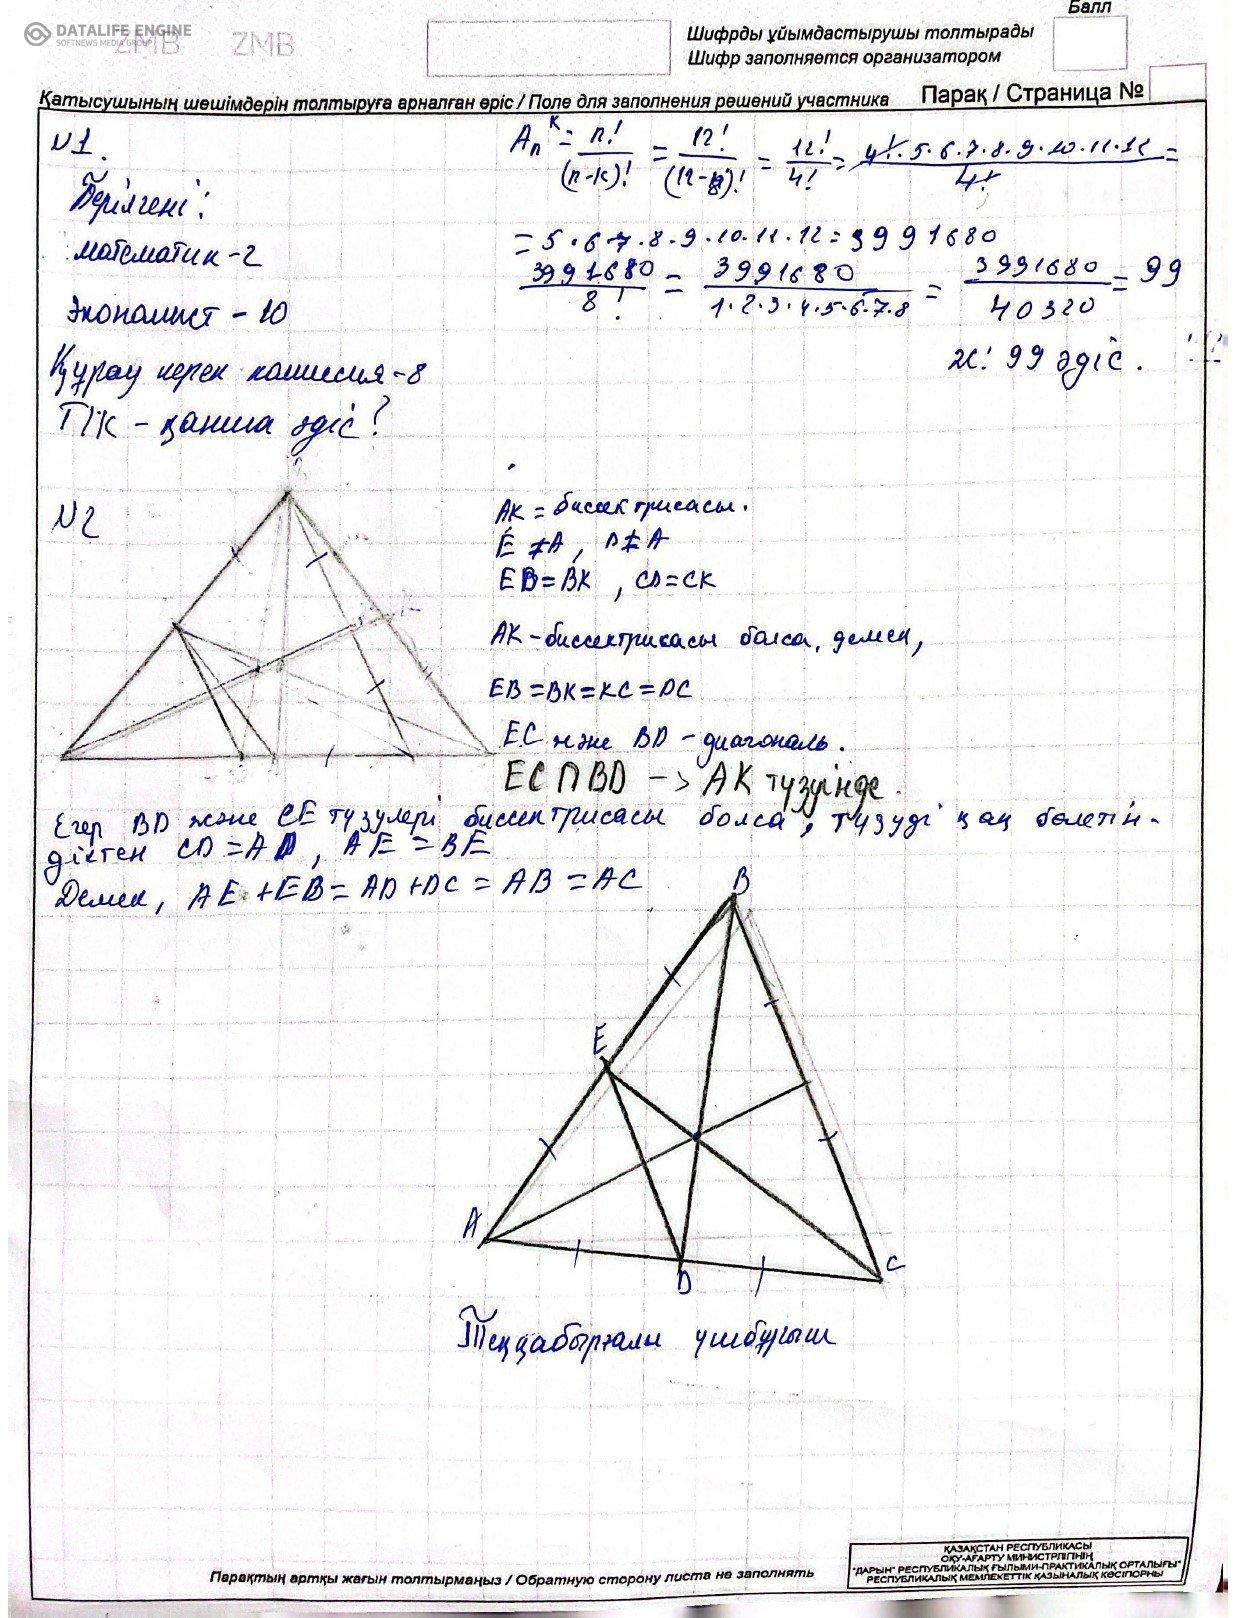 DATALIFE ENGINE
SOFTNEWS MEDIA GROUP
ZMB ZMB
Балл
Шифрды ұйымдастырушы толтырады
Шифр заполняется организатором
Қатысушының шешімдерін толтыруға арналған өріс / Поле для заполнения решений участника
Парақ / Страница №
№1.
Берілгені:
математик-2
Экономист - 10
Құрау керек комиссия-8
Т/К - қанша әдіс?
Aₙᴷ = n!/(n-k)! = 12!/(12-8)! = 12!/4! = 4!·5·6·7·8·9·10·11·12/4! =
= 5·6·7·8·9·10·11·12 = 3991680
3991680/8! = 3991680/1·2·3·4·5·6·7·8 = 3991680/40320 = 99
Ж: 99 әдіс.
№2
AK = биссектрисасы.
E ≠ A, D ≠ A
EB = BK, CD = CK
AK - биссектрисасы болса, демек,
EB = BK = KC = DC
EC және BD - диагональ.
EC ∩ BD -> AK түзуінде.
Егер BD және CE түзулері биссектрисасы болса, түзуді қақ бөлетін-
діктен CD = AD, AE = BE
Демек, AE + EB = AD + DC = AB = AC
B
E
A
D
C
Теңқабырғалы үшбұрыш
Парақтың артқы жағын толтырмаңыз / Обратную сторону листа не заполнять
ҚАЗАҚСТАН РЕСПУБЛИКАСЫ
ОҚУ-АҒАРТУ МИНИСТРЛІГІНІҢ
"ДАРЫН" РЕСПУБЛИКАЛЫҚ ҒЫЛЫМИ-ПРАКТИКАЛЫҚ ОРТАЛЫҒЫ"
РЕСПУБЛИКАЛЫҚ МЕМЛЕКЕТТІК ҚАЗЫНАЛЫҚ КӘСІПОРНЫ